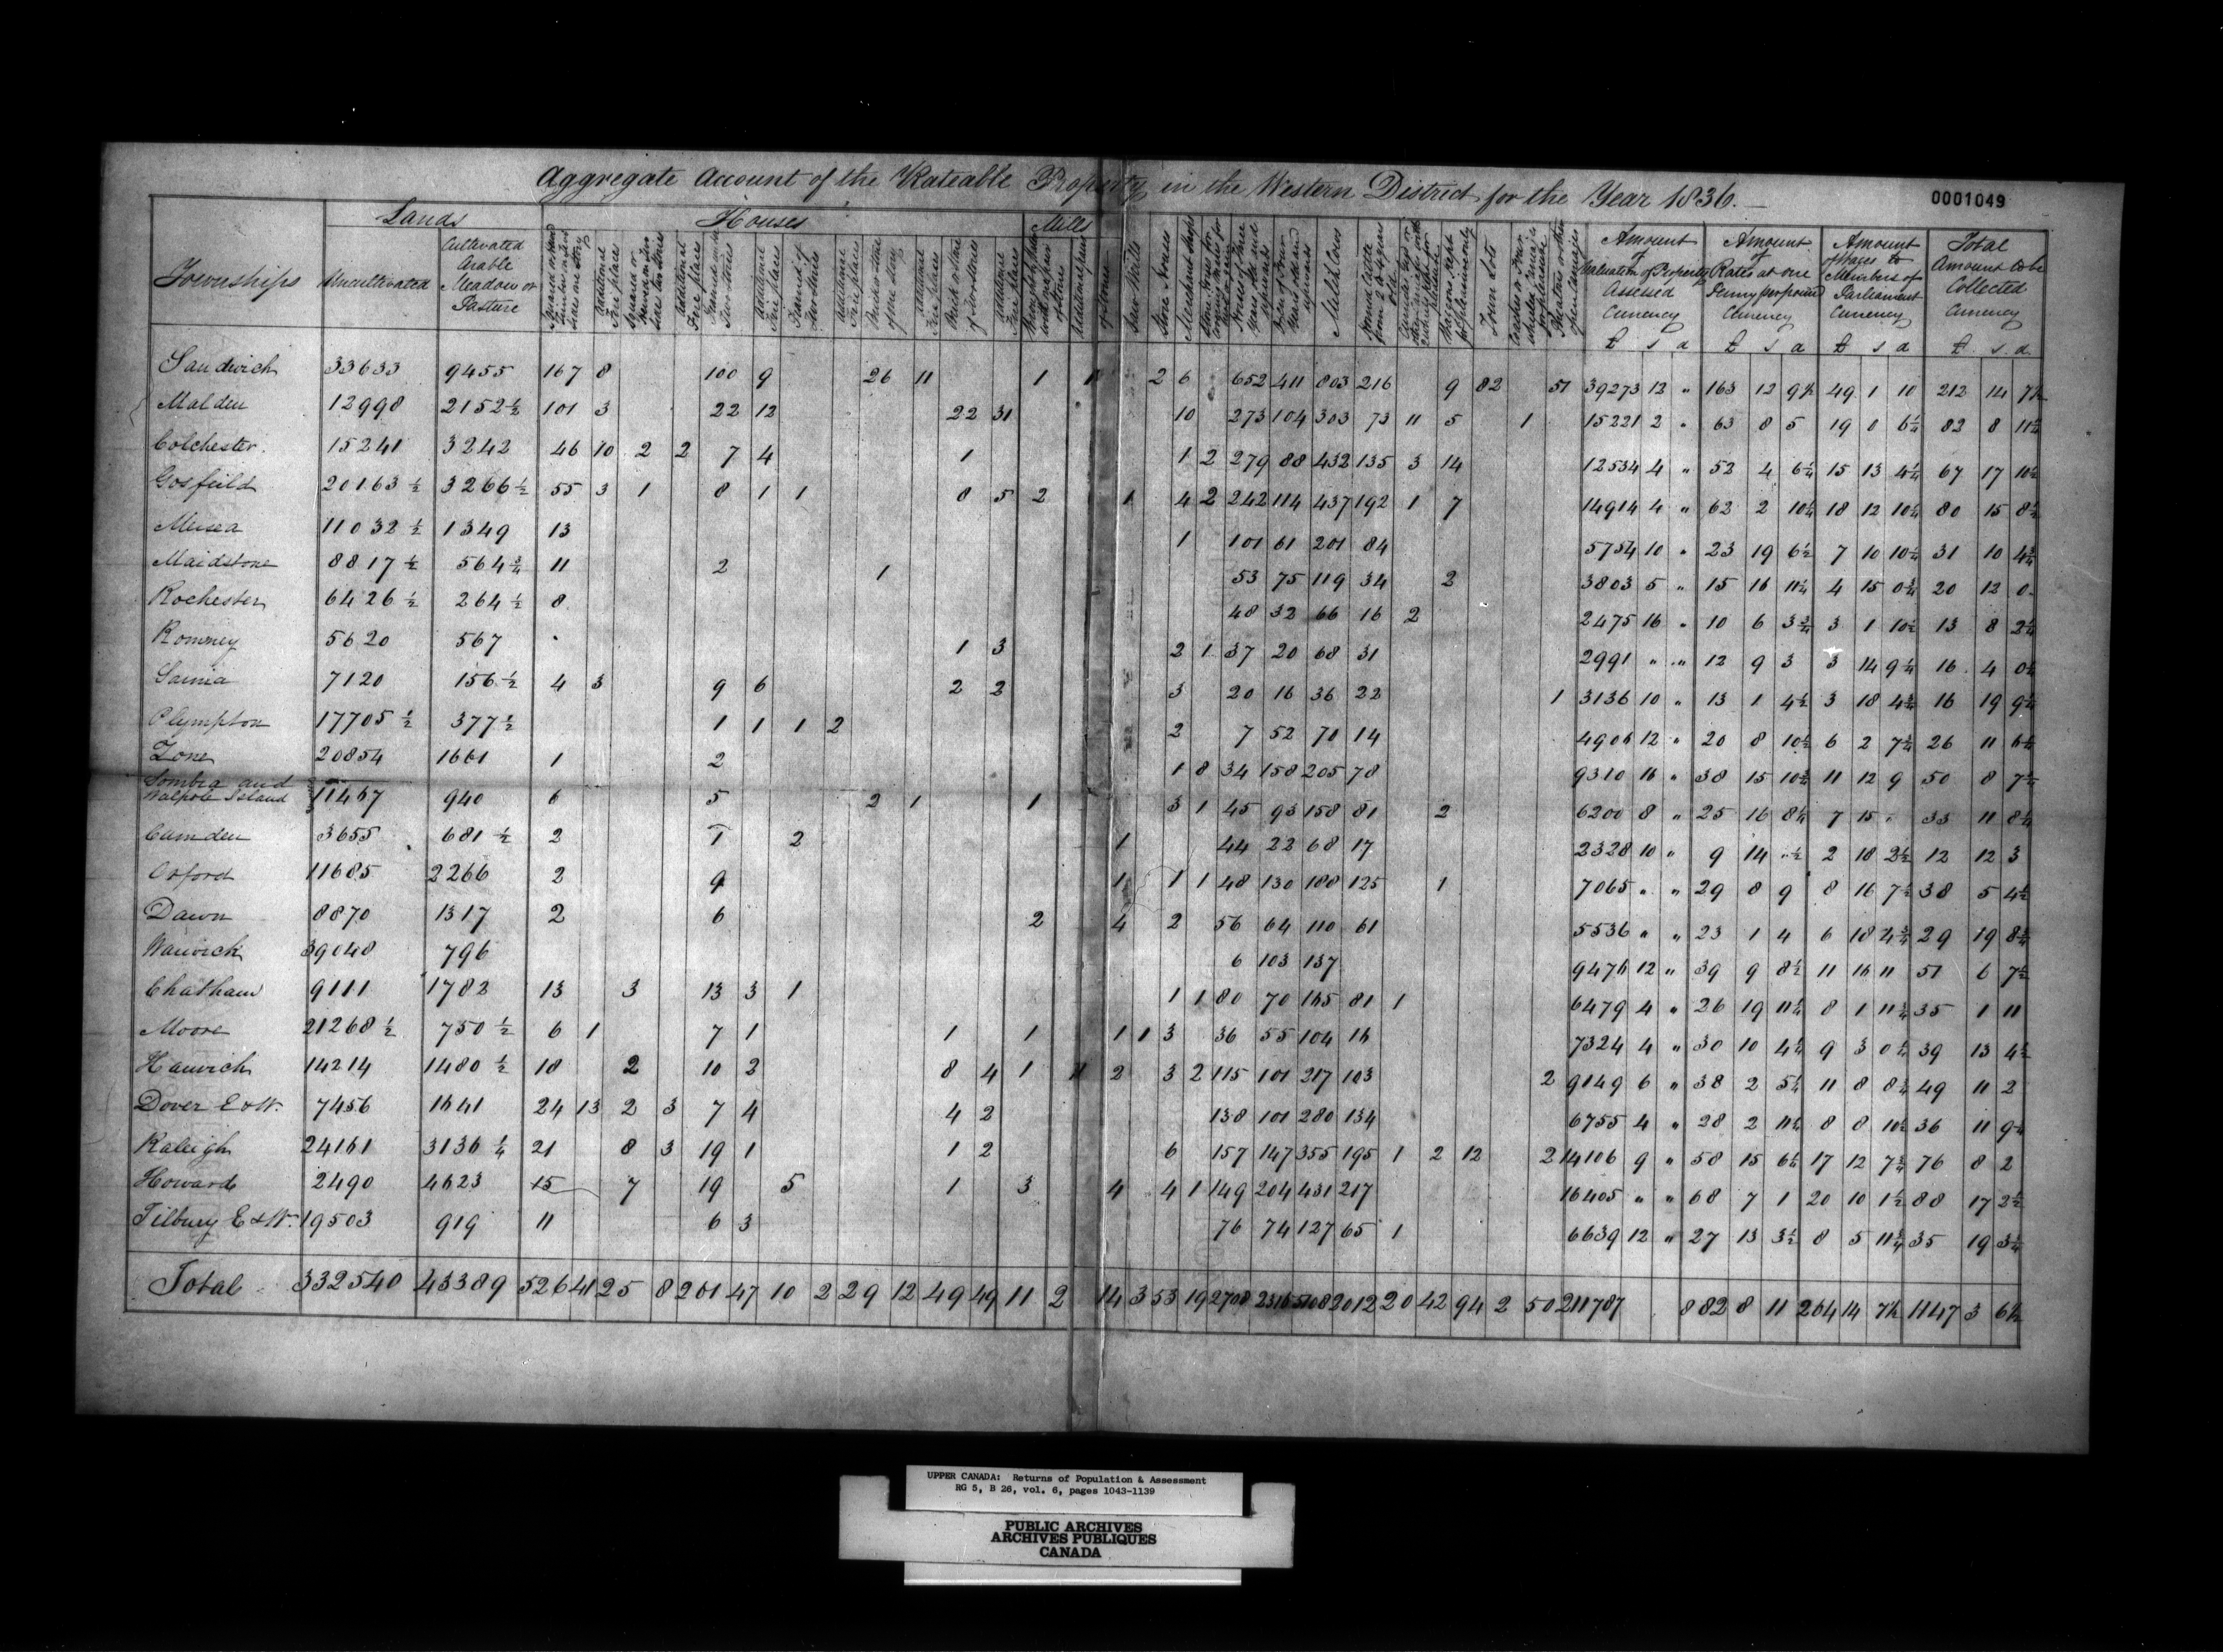 Aggregate Account of the Rateable Property in the Western District for the Year 1836.
0001049
Lands Houses Mills
Townships Uncultivated Cultivated Arable Meadow or Pasture Additional Fire places Additional Fire places Additional Fire places Framed of two stories Additional Fire places Additional Fire places Additional Fire places Saw Mills Store Houses Merchant Shops Milch Cows Town Lots Amount of Valuation of Property Assessed Currency Amount of Rates at one Penny per pound Currency Amount of Wages to Members of Parliament Currency Total Amount to be Collected Currency
£ s d £ s d £ s d £ s d
Sandwich 33633 9455 167 8 100 9 26 11 1 2 6 652 411 803 216 9 82 51 39273 12 " 163 12 9½ 49 1 10 212 14 7½
Malden 12998 2152½ 101 3 22 12 22 31 10 273 104 303 73 11 5 1 15221 2 " 63 8 5 19 0 6¼ 82 8 11¼
Colchester 15241 3242 46 10 2 2 7 4 1 1 2 279 88 432 135 3 14 12534 4 " 52 4 6¼ 15 13 4¼ 67 17 10½
Gosfield 20163½ 3266½ 55 3 1 8 1 1 8 5 2 1 4 2 242 114 437 192 1 7 14914 4 " 62 2 10¼ 18 12 10¼ 80 15 8½
Mersea 11032½ 1349 13 1 101 61 201 84 5754 10 " 23 19 6½ 7 10 10¼ 31 10 4¾
Maidstone 8817½ 564¾ 11 2 1 53 75 119 34 2 3803 5 " 15 16 11¼ 4 15 0¾ 20 12 0
Rochester 6426½ 264½ 8 48 32 66 16 2 2475 16 " 10 6 3¾ 3 1 10½ 13 8 2¼
Romney 5620 567 1 3 2 1 37 20 68 31 2991 " " 12 9 3 3 14 9¼ 16 4 0¼
Sarnia 7120 156½ 4 3 9 6 2 2 3 20 16 36 22 1 3136 10 " 13 1 4½ 3 18 4¾ 16 19 9¼
Plympton 17705½ 377½ 1 1 1 2 2 7 52 70 14 4906 12 " 20 8 10½ 6 2 7¾ 26 11 6¼
Zone 20854 1661 1 2 1 8 34 158 205 78 9310 16 " 38 15 10¾ 11 12 9 50 8 7½
Sombra and
Walpole Island 11467 940 6 5 2 1 1 3 1 45 93 158 81 2 6200 8 " 25 16 8¼ 7 15 " 33 11 8¼
Camden 3655 681½ 2 1 2 1 44 22 68 17 2328 10 " 9 14 "½ 2 18 2½ 12 12 3
Orford 11685 2266 2 9 1 1 1 48 130 188 125 1 7065 " " 29 8 9 8 16 7½ 38 5 4½
Dawn 8870 1317 2 6 2 4 2 56 64 110 61 5536 " " 23 1 4 6 18 4¾ 29 19 8¾
Warwick 39048 796 6 103 137 9476 12 " 39 9 8½ 11 16 11 51 6 7½
Chatham 9111 1782 13 3 13 3 1 1 1 80 70 165 81 1 6479 4 " 26 19 11¼ 8 1 11¾ 35 1 11
Moore 21268½ 750½ 6 1 7 1 1 1 1 1 3 36 55 104 16 7324 4 " 30 10 4¼ 9 3 0¼ 39 13 4½
Harwich 14214 1480½ 18 2 10 2 8 4 1 2 3 2 115 101 217 103 2 9149 6 " 38 2 5¼ 11 8 8¾ 49 11 2
Dover E & W. 7456 1641 24 13 2 3 7 4 4 2 138 101 280 134 6755 4 " 28 2 11¼ 8 8 10½ 36 11 9¾
Raleigh 24161 3136¼ 21 8 3 19 1 1 2 6 157 147 355 195 1 2 12 2 14106 9 " 58 15 6¼ 17 12 7¾ 76 8 2
Howard 2490 4623 15 7 19 5 1 3 4 4 1 149 204 431 217 16405 " " 68 7 1 20 10 1½ 88 17 2½
Tilbury E & W. 19503 919 11 6 3 76 74 127 65 1 6639 12 " 27 13 3½ 8 5 11¾ 35 19 3¼
Total 332540 43389 526 41 25 8 261 47 10 2 29 12 49 49 11 2 14 3 53 19 2708 2316 5108 2012 20 42 94 2 50 211787 882 8 11 264 14 7½ 1147 3 6½
UPPER CANADA: Returns of Population & Assessment
RG 5, B 26, vol. 6, pages 1043-1139
PUBLIC ARCHIVES
ARCHIVES PUBLIQUES
CANADA